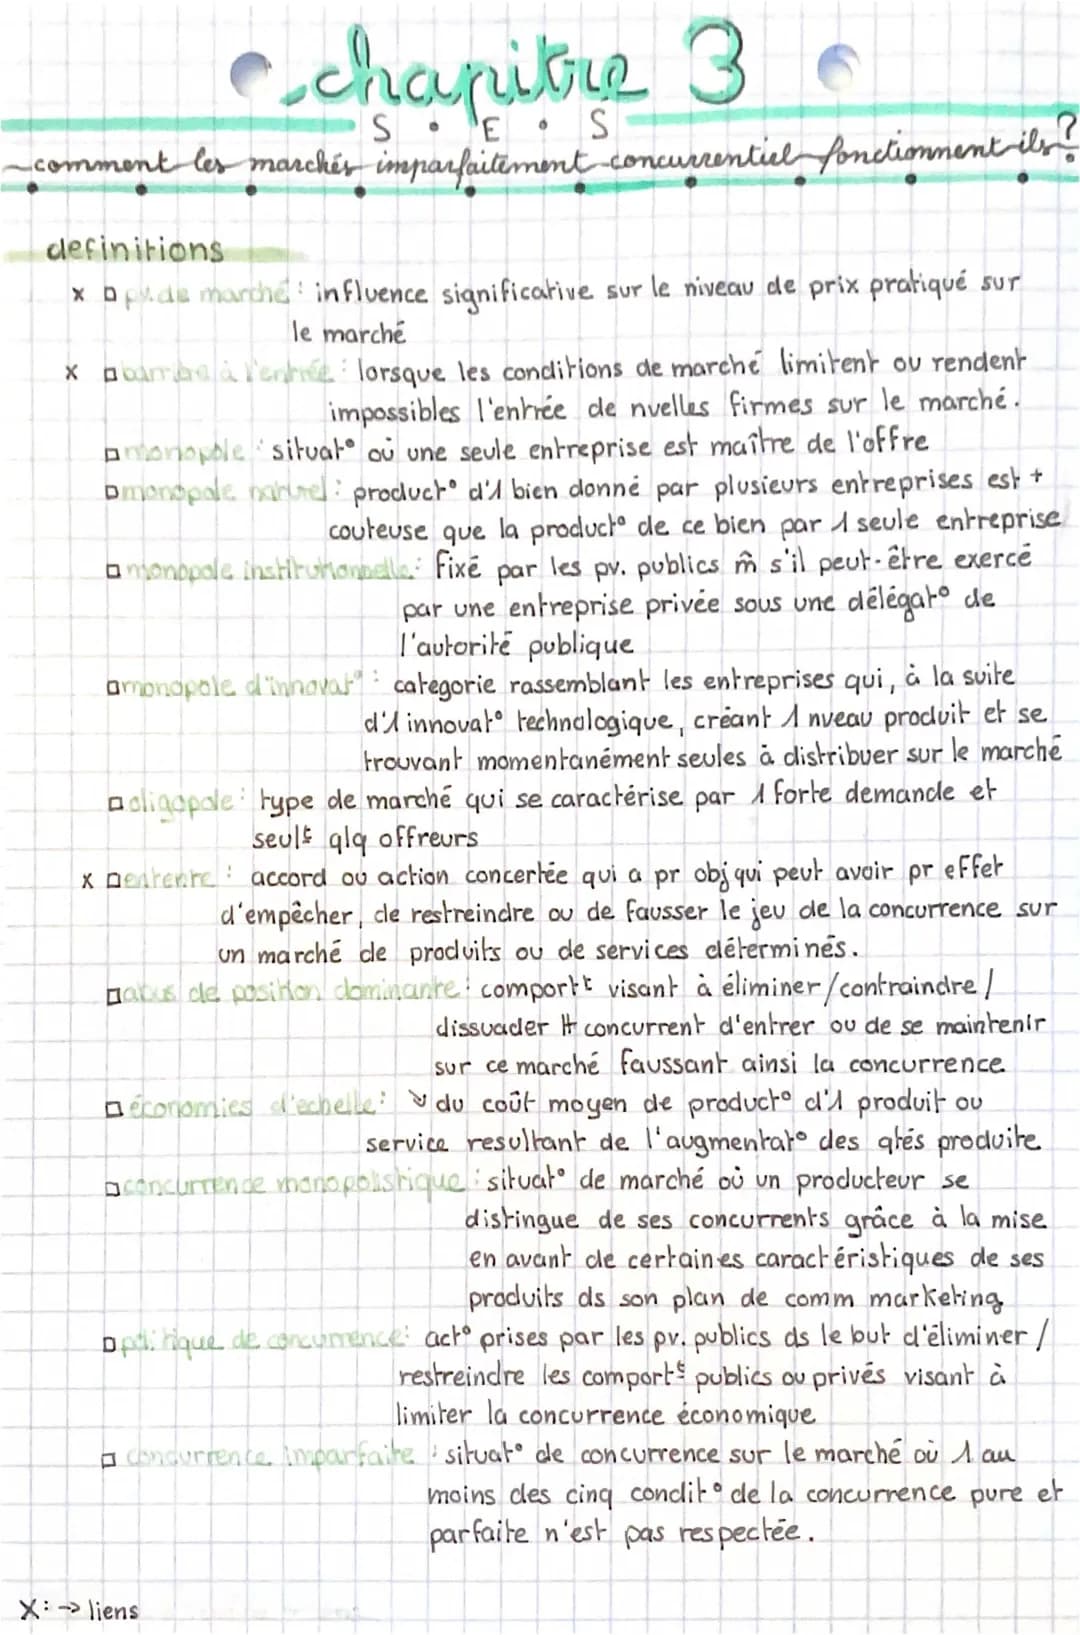 chapitre 3
S • E • S
comment les marchés imparfaitement concurrentiel fonctionnent ils ?
definitions
x □ pv. de marché : influence significative sur le niveau de prix pratiqué sur
le marché
x □ barrière à l'entrée : lorsque les conditions de marché limitent ou rendent
impossibles l'entrée de nvelles firmes sur le marché.
□ monopole : situat° où une seule entreprise est maître de l'offre
□ monopole naturel : product° d'1 bien donné par plusieurs entreprises est +
couteuse que la product° de ce bien par 1 seule entreprise
□ monopole institutionnelle : fixé par les pv. publics m̂ s'il peut-être exercé
par une entreprise privée sous une délégat° de
l'autorité publique
□ monopole d'innovat° : categorie rassemblant les entreprises qui, à la suite
d'1 innovat° technologique, créant 1 nveau produit et se
trouvant momentanément seules à distribuer sur le marché
□ oligopole : type de marché qui se caractérise par 1 forte demande et
seult qlq offreurs
x □ entente : accord ou action concertée qui a pr obj qui peut avoir pr effet
d'empêcher, de restreindre ou de fausser le jeu de la concurrence sur
un marché de produits ou de services déterminés.
□ abus de position dominante : comportt visant à éliminer/contraindre/
dissuader tt concurrent d'entrer ou de se maintenir
sur ce marché faussant ainsi la concurrence
□ économies d'echelle : ↘ du coût moyen de product° d'1 produit ou
service resultant de l'augmentat° des qtés produite
□ concurrence monopolistique : situat° de marché où un producteur se
distingue de ses concurrents grâce à la mise
en avant de certaines caractéristiques de ses
produits ds son plan de comm marketing
□ politique de concurrence : act° prises par les pv. publics ds le but d'éliminer/
restreindre les comportts publics ou privés visant à
limiter la concurrence économique
□ concurrence imparfaite : situat° de concurrence sur le marché où 1 au
moins des cinq condit° de la concurrence pure et
parfaite n'est pas respectée.
X : → liens